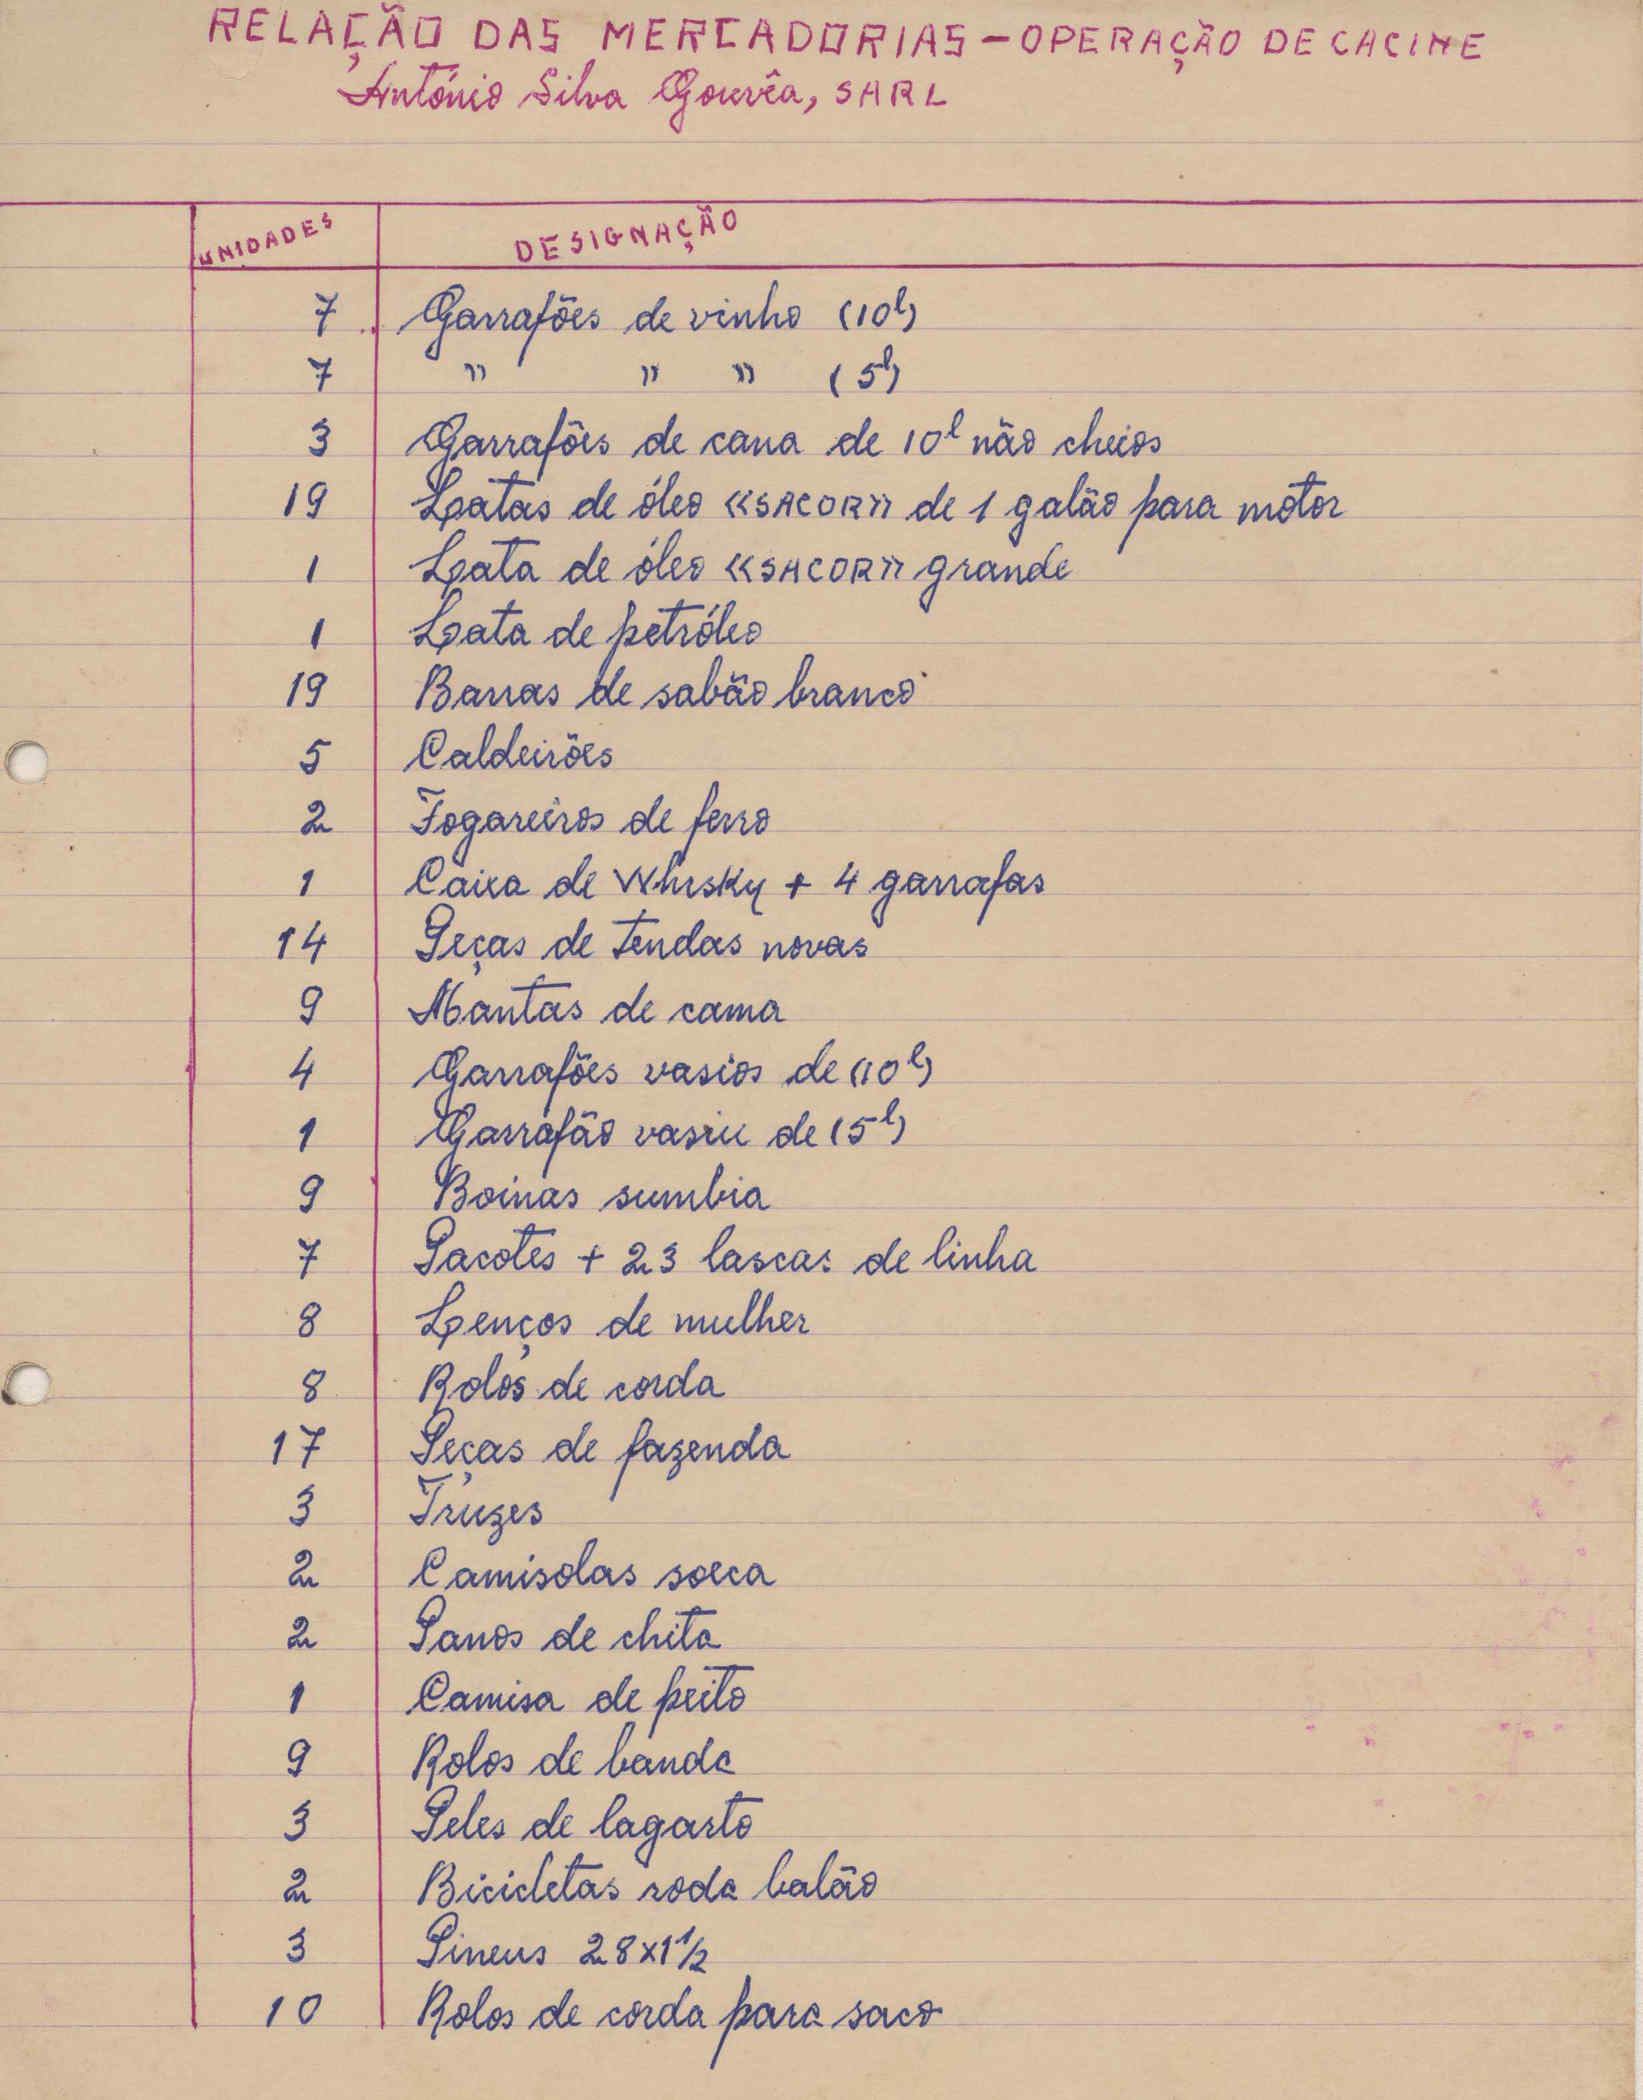 RELAÇÃO DAS MERCADORIAS - OPERAÇÃO DE CACINE
António Silva Gouvêa, SARL
UNIDADES DESIGNAÇÃO
7 Garrafões de vinho (10l)
7 " " " (5l)
3 Garrafões de cana de 10l não cheios
19 Latas de óleo «SACOR» de 1 galão para motor
1 Lata de óleo «SACOR» grande
1 Lata de petróleo
19 Barras de sabão branco
5 Caldeirões
2 Fogareiros de ferro
1 Caixa de Whisky + 4 garrafas
14 Peças de tendas novas
9 Mantas de cama
4 Garrafões vasios de (10l)
1 Garrafão vasiu de (5l)
9 Boinas sumbia
7 Pacotes + 23 lascas de linha
8 Lenços de mulher
8 Rolos de corda
17 Peças de fazenda
3 Truzes
2 Camisolas soeca
2 Panos de chita
1 Camisa de peito
9 Rolos de banda
3 Peles de lagarto
2 Bicicletas roda balão
3 Pineus 28x1 1/2
10 Rolos de corda para saco